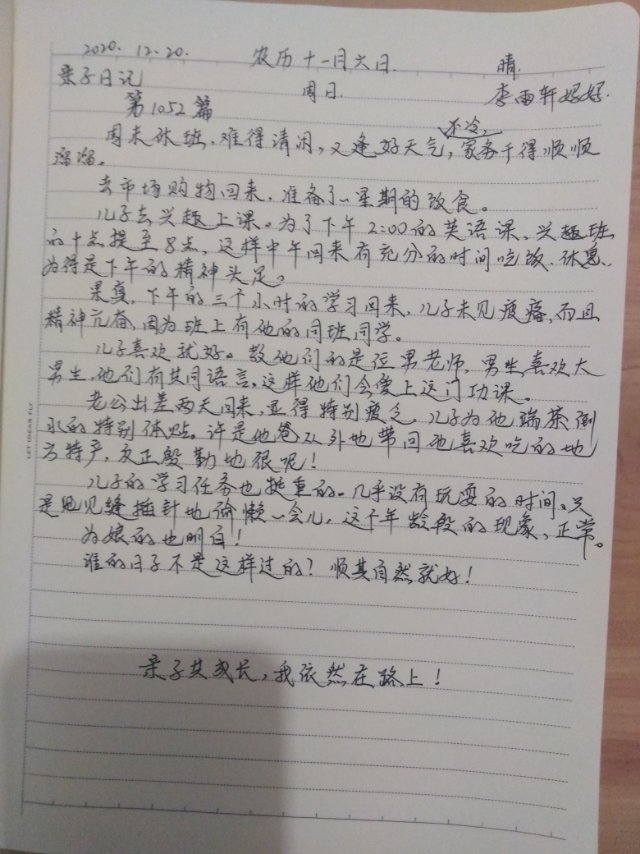 2020.12.20. 农历十一月六日. 晴.
亲子日记 周日. 李雨轩妈妈.
第1052篇
周末休班,难得清闲,又逢好天气,不冷,家务干得顺顺
溜溜。
去市场购物回来,准备了一星期的饭食。
儿子去兴趣上课。为了下午2:00的英语课,兴趣班
的十点提至8点,这样中午回来有充分的时间吃饭、休息,
为得是下午的精神头足。
果真,下午的三个小时的学习回来,儿子未见疲瘆,而且
精神亢奋,因为班上有他的同班同学。
儿子喜欢就好。教他们的是位男老师,男生喜欢大
男生,他们有共同语言。这样他们会爱上这门功课。
老公出差两天回来,显得特别疲乏,儿子为他端茶倒
水的特别体贴。许是他爸从外地带回他喜欢吃的地
方特产,反正殷勤地很呢!
儿子的学习任务也挺重的。几乎没有玩耍的时间。只
是见缝插针地偷懒一会儿,这个年龄段的现象,正常。
为娘的也明白!
谁的日子不是这样过的?顺其自然就好!
亲子共成长,我依然在路上!
LET IDEAS FLY